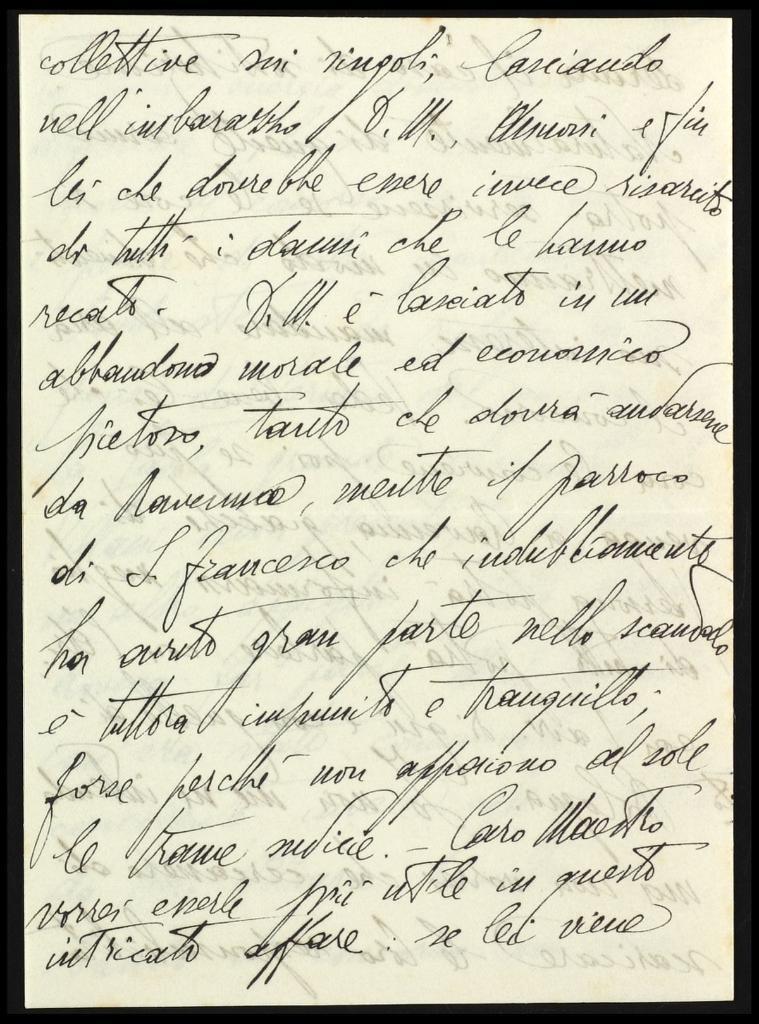 collettive sui singoli, lasciando
nell'imbarazzo D. M., e fin
lei che dovrebbe essere invece risarcito
di tutti i danni che le hanno
recato. D. M. è lasciato in un
abbandono morale ed economico
pietoso, tanto che dovrà andarsene
da Ravenna, mentre il parroco
di S. Francesco che indubbiamente
ha avuto gran parte nello scandalo
è tuttora impunito e tranquillo;
forse perchè non appaiono al sole
le trame sudicie. - Caro Maestro
vorrei esserle più utile in questo
intricato affare: se lei viene